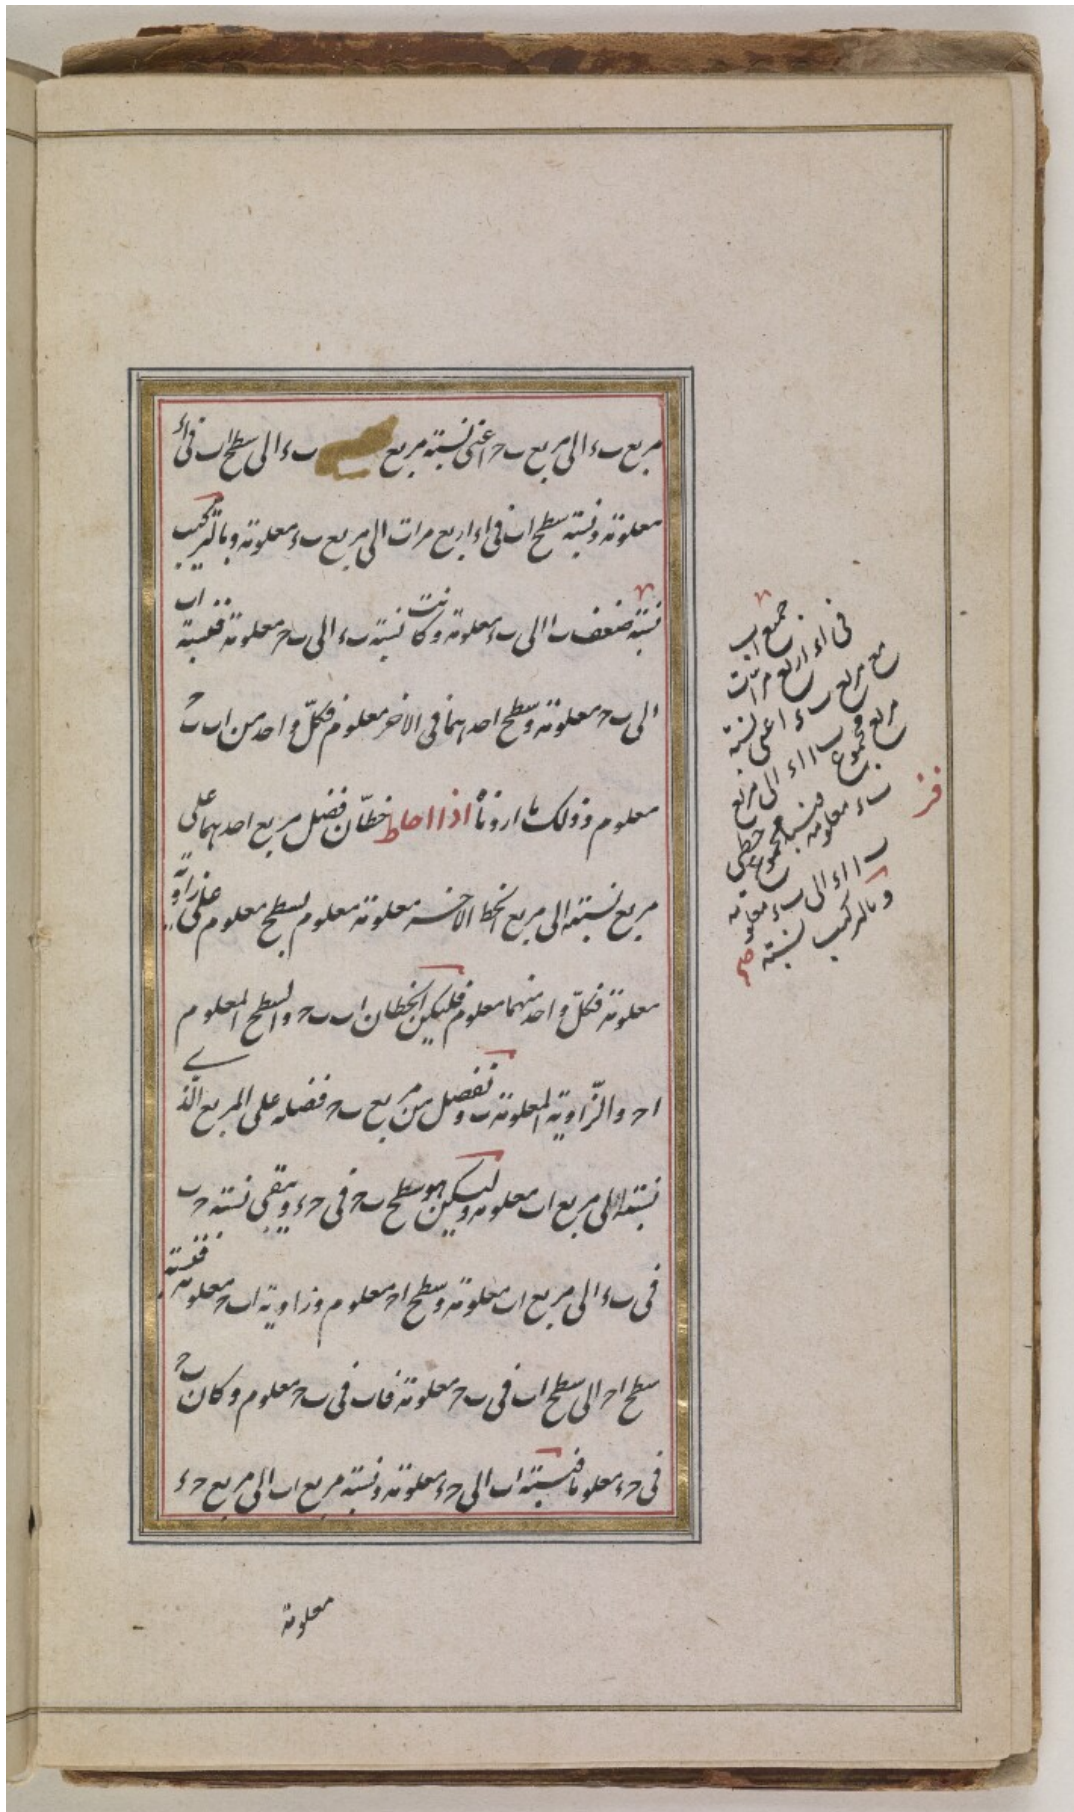 مربع ٮء الى مربع ٮح اعنى نسبته مربع ٮء الى سطح اٮ فى اء
معلومة ونسبته سطح اٮ فى اء اربع مرات الى مربع ٮء معلومة وبالتركيب
نسبته ضعف ٮا الى ٮء معلومة وكانت نسبته ٮء الى ٮح معلومة فنسبته اٮ
الى ٮح معلومة وسطح احدهما فى الاخر معلوم فكلّ واحد من اٮ ٮح
معلوم وذلك ما اردناه اذا احاط خطّان فضل مربع احدهما على
مربع نسبته الى مربع الخط الاخر معلومة معلوم بسطح معلوم على زاوية
معلومة فكلّ واحد منهما معلوم فليكن الخطان اٮ ٮح والسطح المعلوم
اح والزّاوية المعلومة ٮ ونفصل من مربع ٮح فضله على المربع الّذى
نسبته الى مربع اٮ معلومة وليكن هو سطح ٮح فى حء ويبقى نسبته حٮ
فى ٮء الى مربع اٮ معلومة وسطح اح معلوم وزاوية اٮح معلومة فنسبته
سطح اح الى سطح اٮ فى ٮح معلومة فاٮ فى ٮح معلوم وكان ٮح
فى حء معلوما فنسبته اٮ الى حء معلومة ونسبته مربع اٮ الى مربع حء
معلومة
جميع اٮ
فى اء اربع مرّات
مع مربع ٮء اعنى نسبته
مربع مجموع ٮا اء الى مربع
ٮء معلومة فنسبته مجموع خطى
ٮا اء الى ٮء معلومة
وبالتركيب نسبته
صح
فز